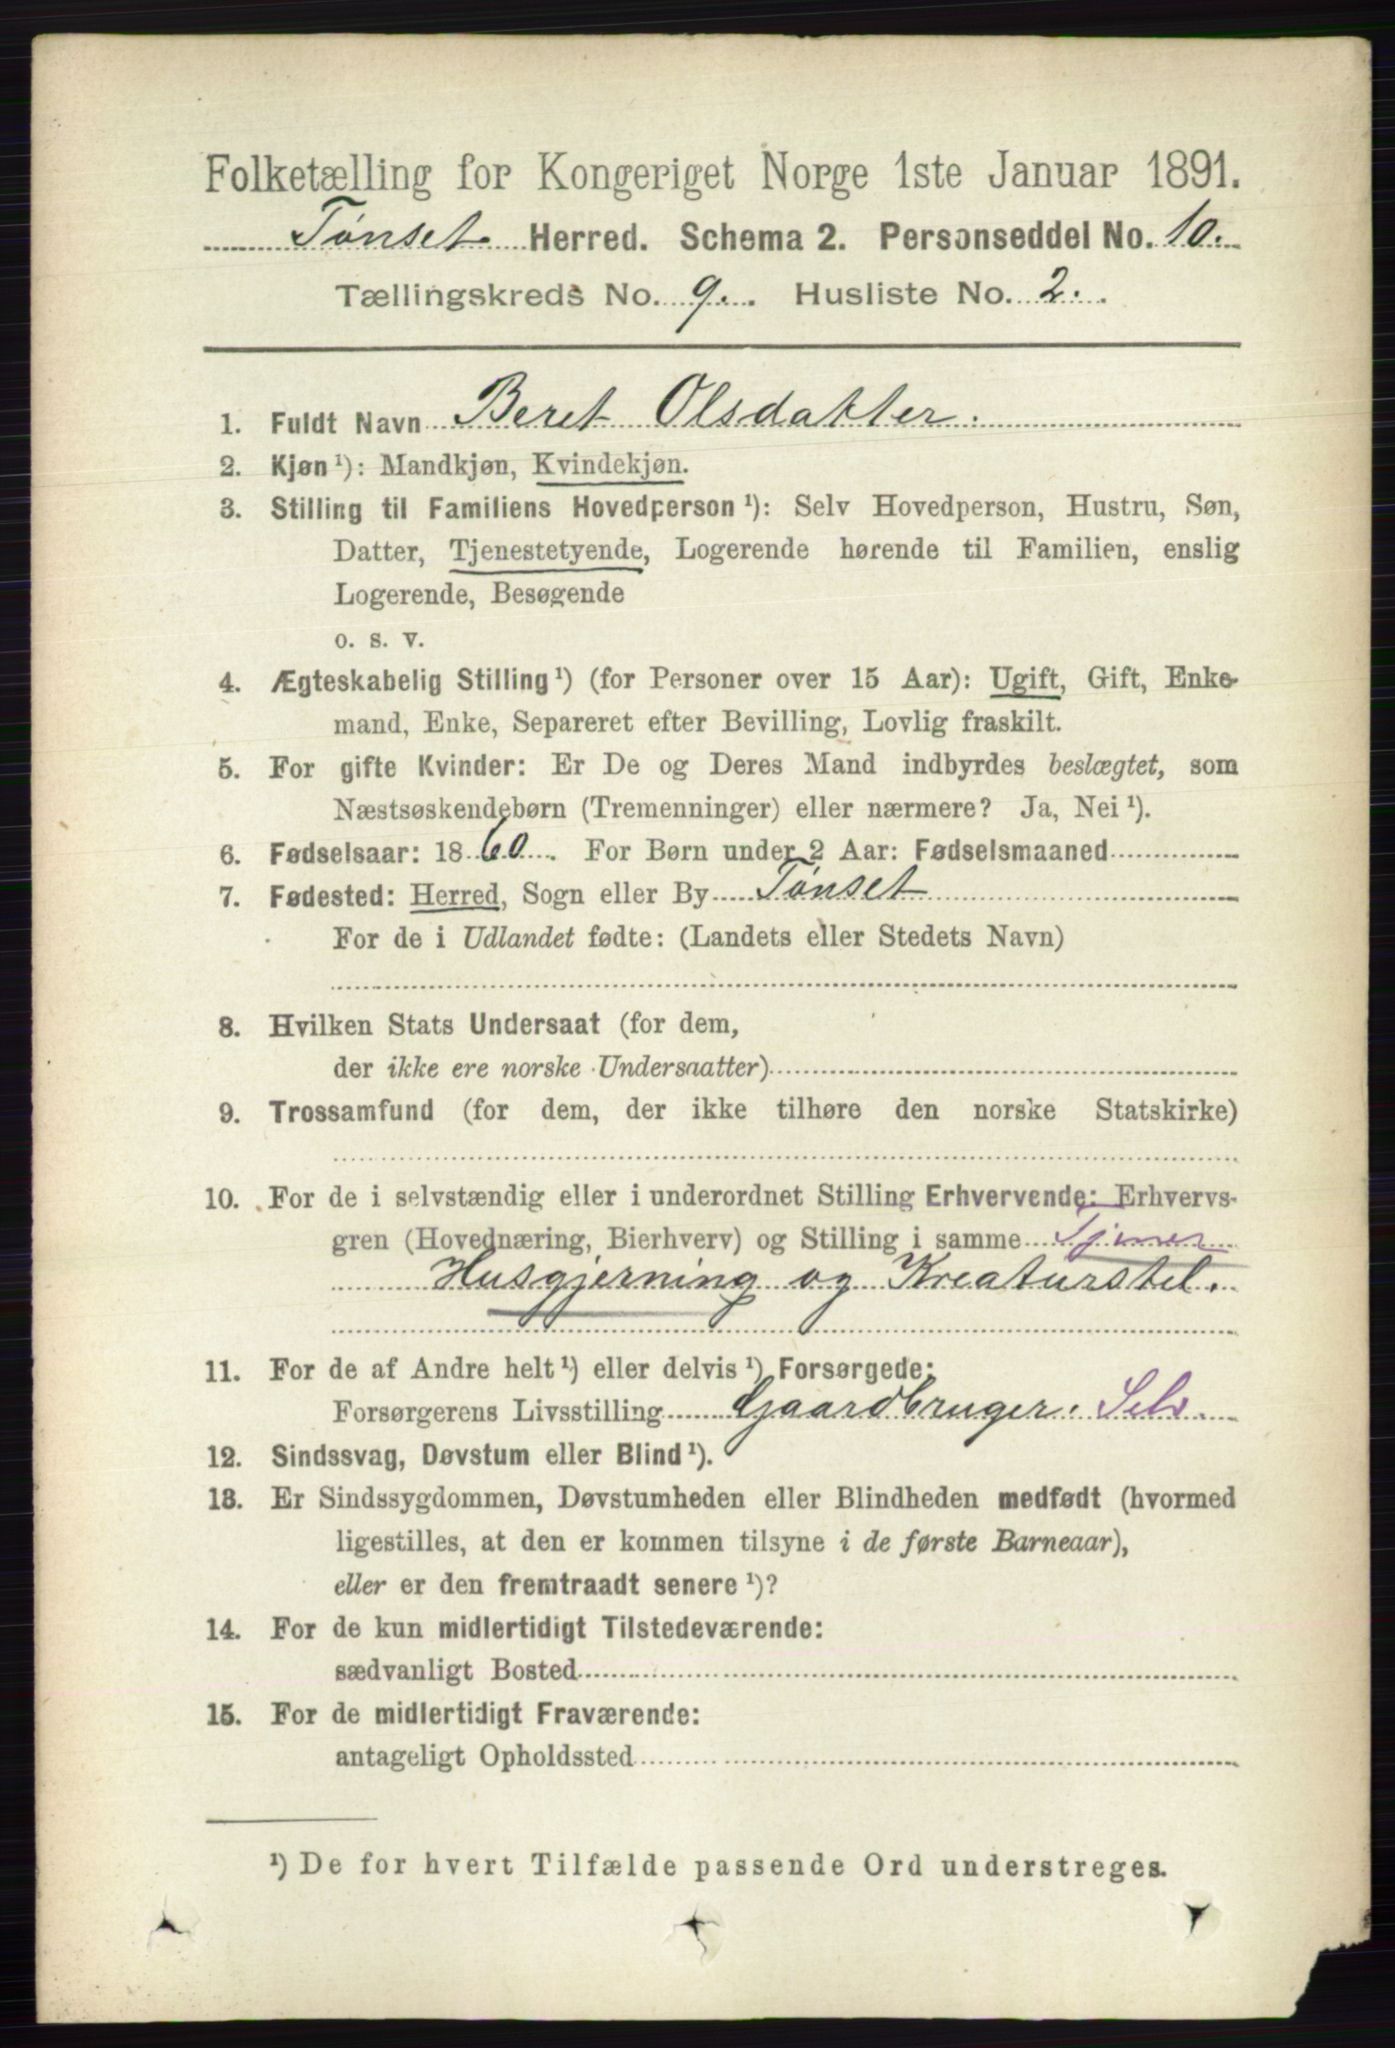 Folketælling for Kongeriget Norge 1ste Januar 1891.
Tønset. Herred. Schema 2. Personseddel No. 10.
Tællingskreds No. 9. Husliste No. 2.
1. Fuldt Navn Beret Olsdatter.
2. Kjøn ¹): Mandkjøn, Kvindekjøn.
3. Stilling til Familiens Hovedperson ¹): Selv Hovedperson, Hustru, Søn,
Datter, Tjenestetyende, Logerende hørende til Familien, enslig
Logerende, Besøgende
o. s. v.
4. Ægteskabelig Stilling ¹) (for Personer over 15 Aar): Ugift, Gift, Enke-
mand, Enke, Separeret efter Bevilling, Lovlig fraskilt.
5. For gifte Kvinder: Er De og Deres Mand indbyrdes beslægtet, som
Næstsøskendebørn (Tremenninger) eller nærmere? Ja, Nei ¹).
6. Fødselsaar: 1860. For Børn under 2 Aar: Fødselsmaaned
7. Fødested: Herred, Sogn eller By Tønset
For de i Udlandet fødte: (Landets eller Stedets Navn)
8. Hvilken Stats Undersaat (for dem,
der ikke ere norske Undersaatter)
9. Trossamfund (for dem, der ikke tilhøre den norske Statskirke)
10. For de i selvstændig eller i underordnet Stilling Erhvervende: Erhvervs-
gren (Hovednæring, Bierhverv) og Stilling i samme Tjener
Husgjerning og Kreaturstel.
11. For de af Andre helt ¹) eller delvis ¹) Forsørgede:
Forsørgerens Livsstilling Gaardbruger. Selv.
12. Sindssvag, Døvstum eller Blind ¹).
13. Er Sindssygdommen, Døvstumheden eller Blindheden medfødt (hvormed
ligestilles, at den er kommen tilsyne i de første Barneaar),
eller er den fremtraadt senere ¹)?
14. For de kun midlertidigt Tilstedeværende:
sædvanligt Bosted
15. For de midlertidigt Fraværende:
antageligt Opholdssted
¹) De for hvert Tilfælde passende Ord understreges.